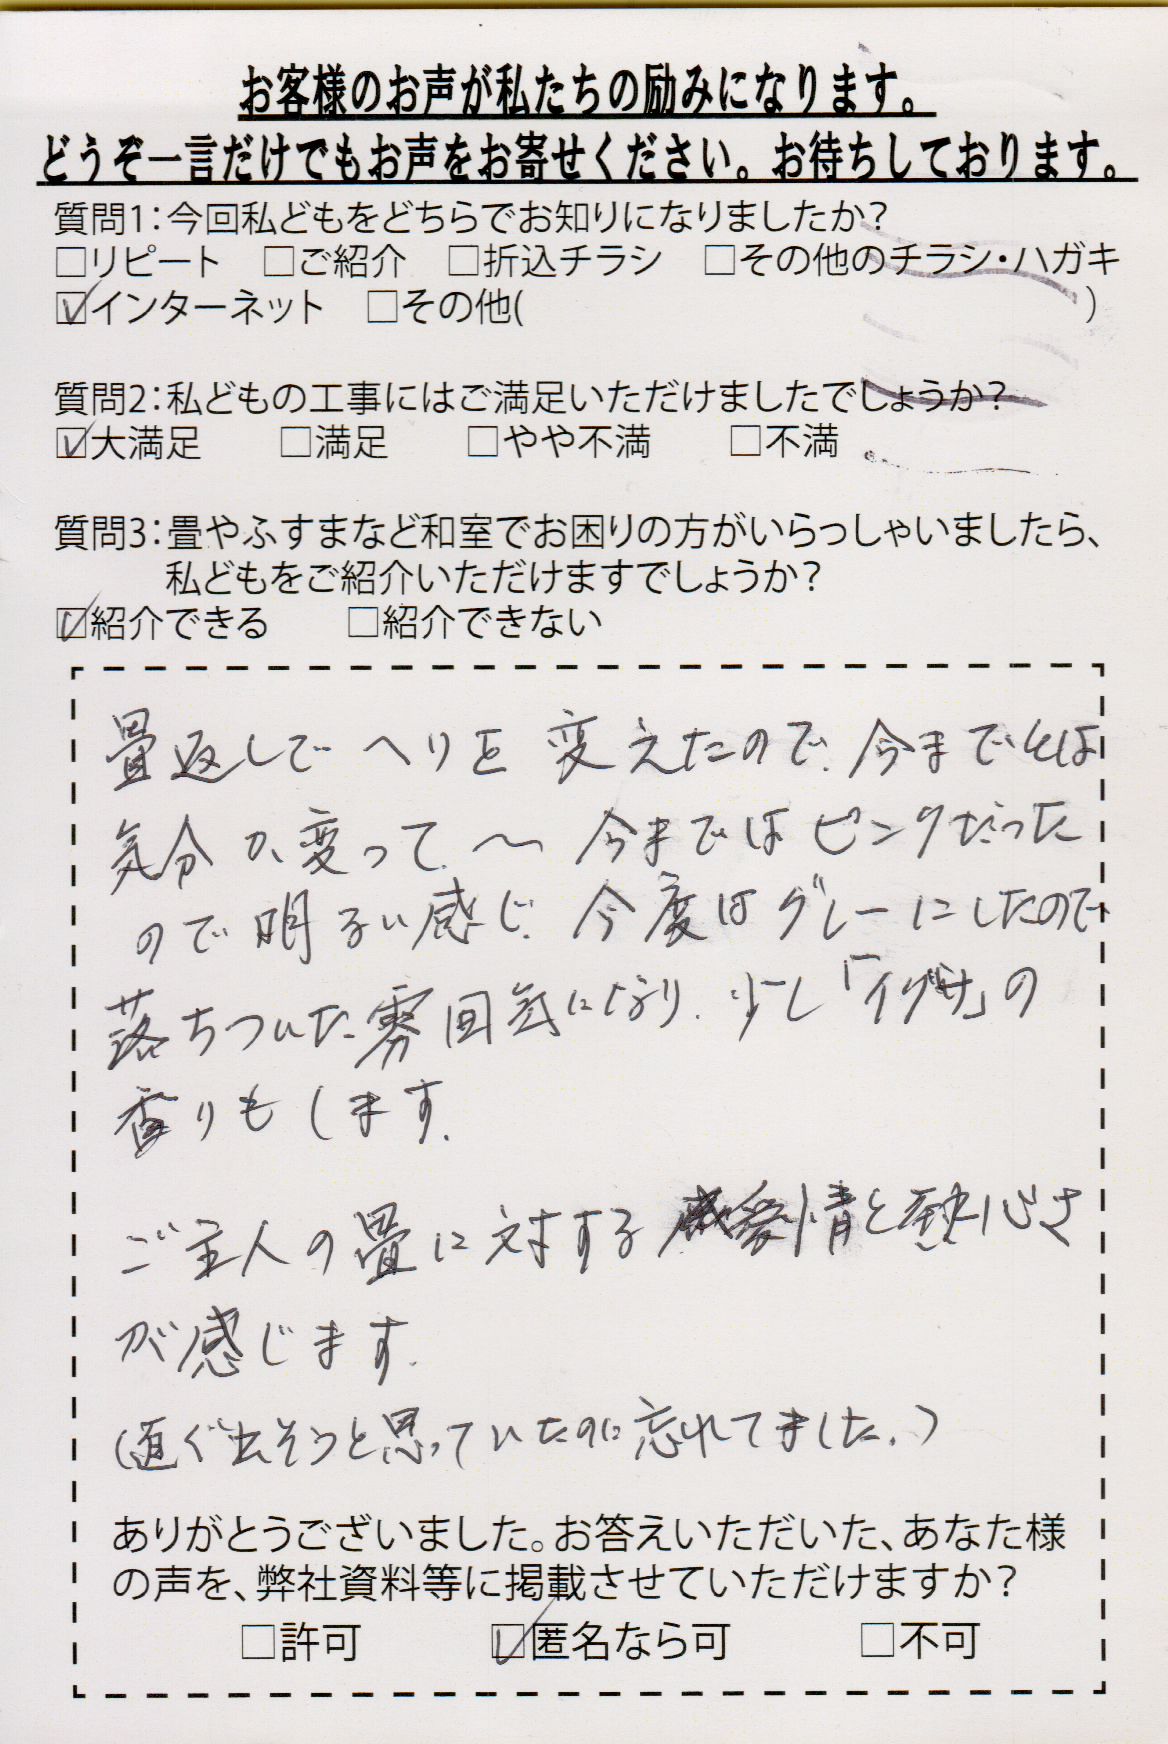 お客様のお声が私たちの励みになります。
どうぞ一言だけでもお声をお寄せください。お待ちしております。
質問1:今回私どもをどちらでお知りになりましたか?
□リピート □ご紹介 □折込チラシ □その他のチラシ・ハガキ
☑インターネット □その他( )
質問2:私どもの工事にはご満足いただけましたでしょうか?
☑大満足 □満足 □やや不満 □不満
質問3:畳やふすまなど和室でお困りの方がいらっしゃいましたら、
私どもをご紹介いただけますでしょうか?
☑紹介できる □紹介できない
畳返しでヘリを変えたので、今までとは
気分が変って、〜今まではピンクだった
ので明るい感じ、今度はグレーにしたので
落ちついた雰囲気になり、少し「イグサ」の
香りもします。
ご主人の畳に対する愛情と熱心さ
が感じます。
(直ぐ出そうと思っていたのに忘れてました。)
ありがとうございました。お答えいただいた、あなた様
の声を、弊社資料等に掲載させていただけますか?
□許可 ☑匿名なら可 □不可